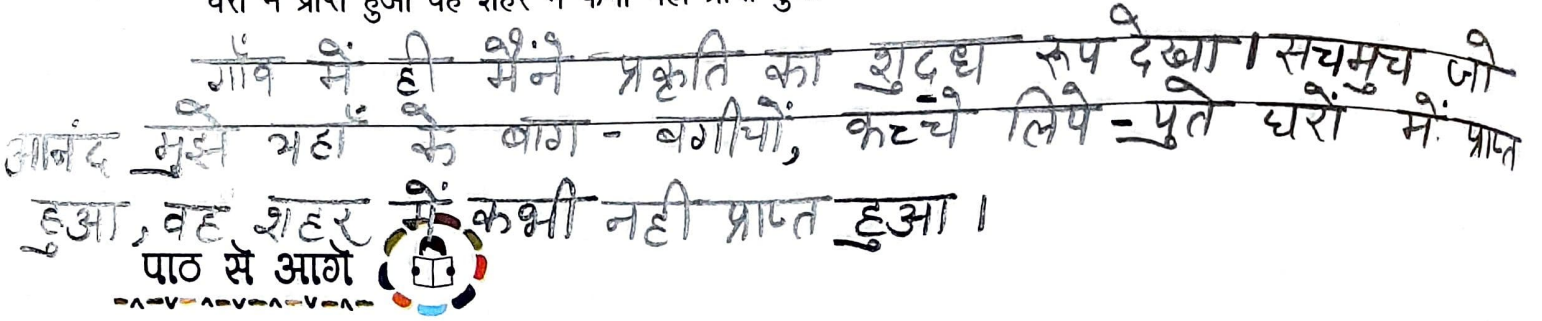 गाँव में ही मैंने प्रकृति का शुद्ध रूप देखा। सचमुच जो
आनंद मुझे यहाँ के बाग - बगीचों, कच्चे लिपे - पुते घरों में प्राप्त
हुआ, वह शहर में कभी नही प्राप्त हुआ।
पाठ से आगे